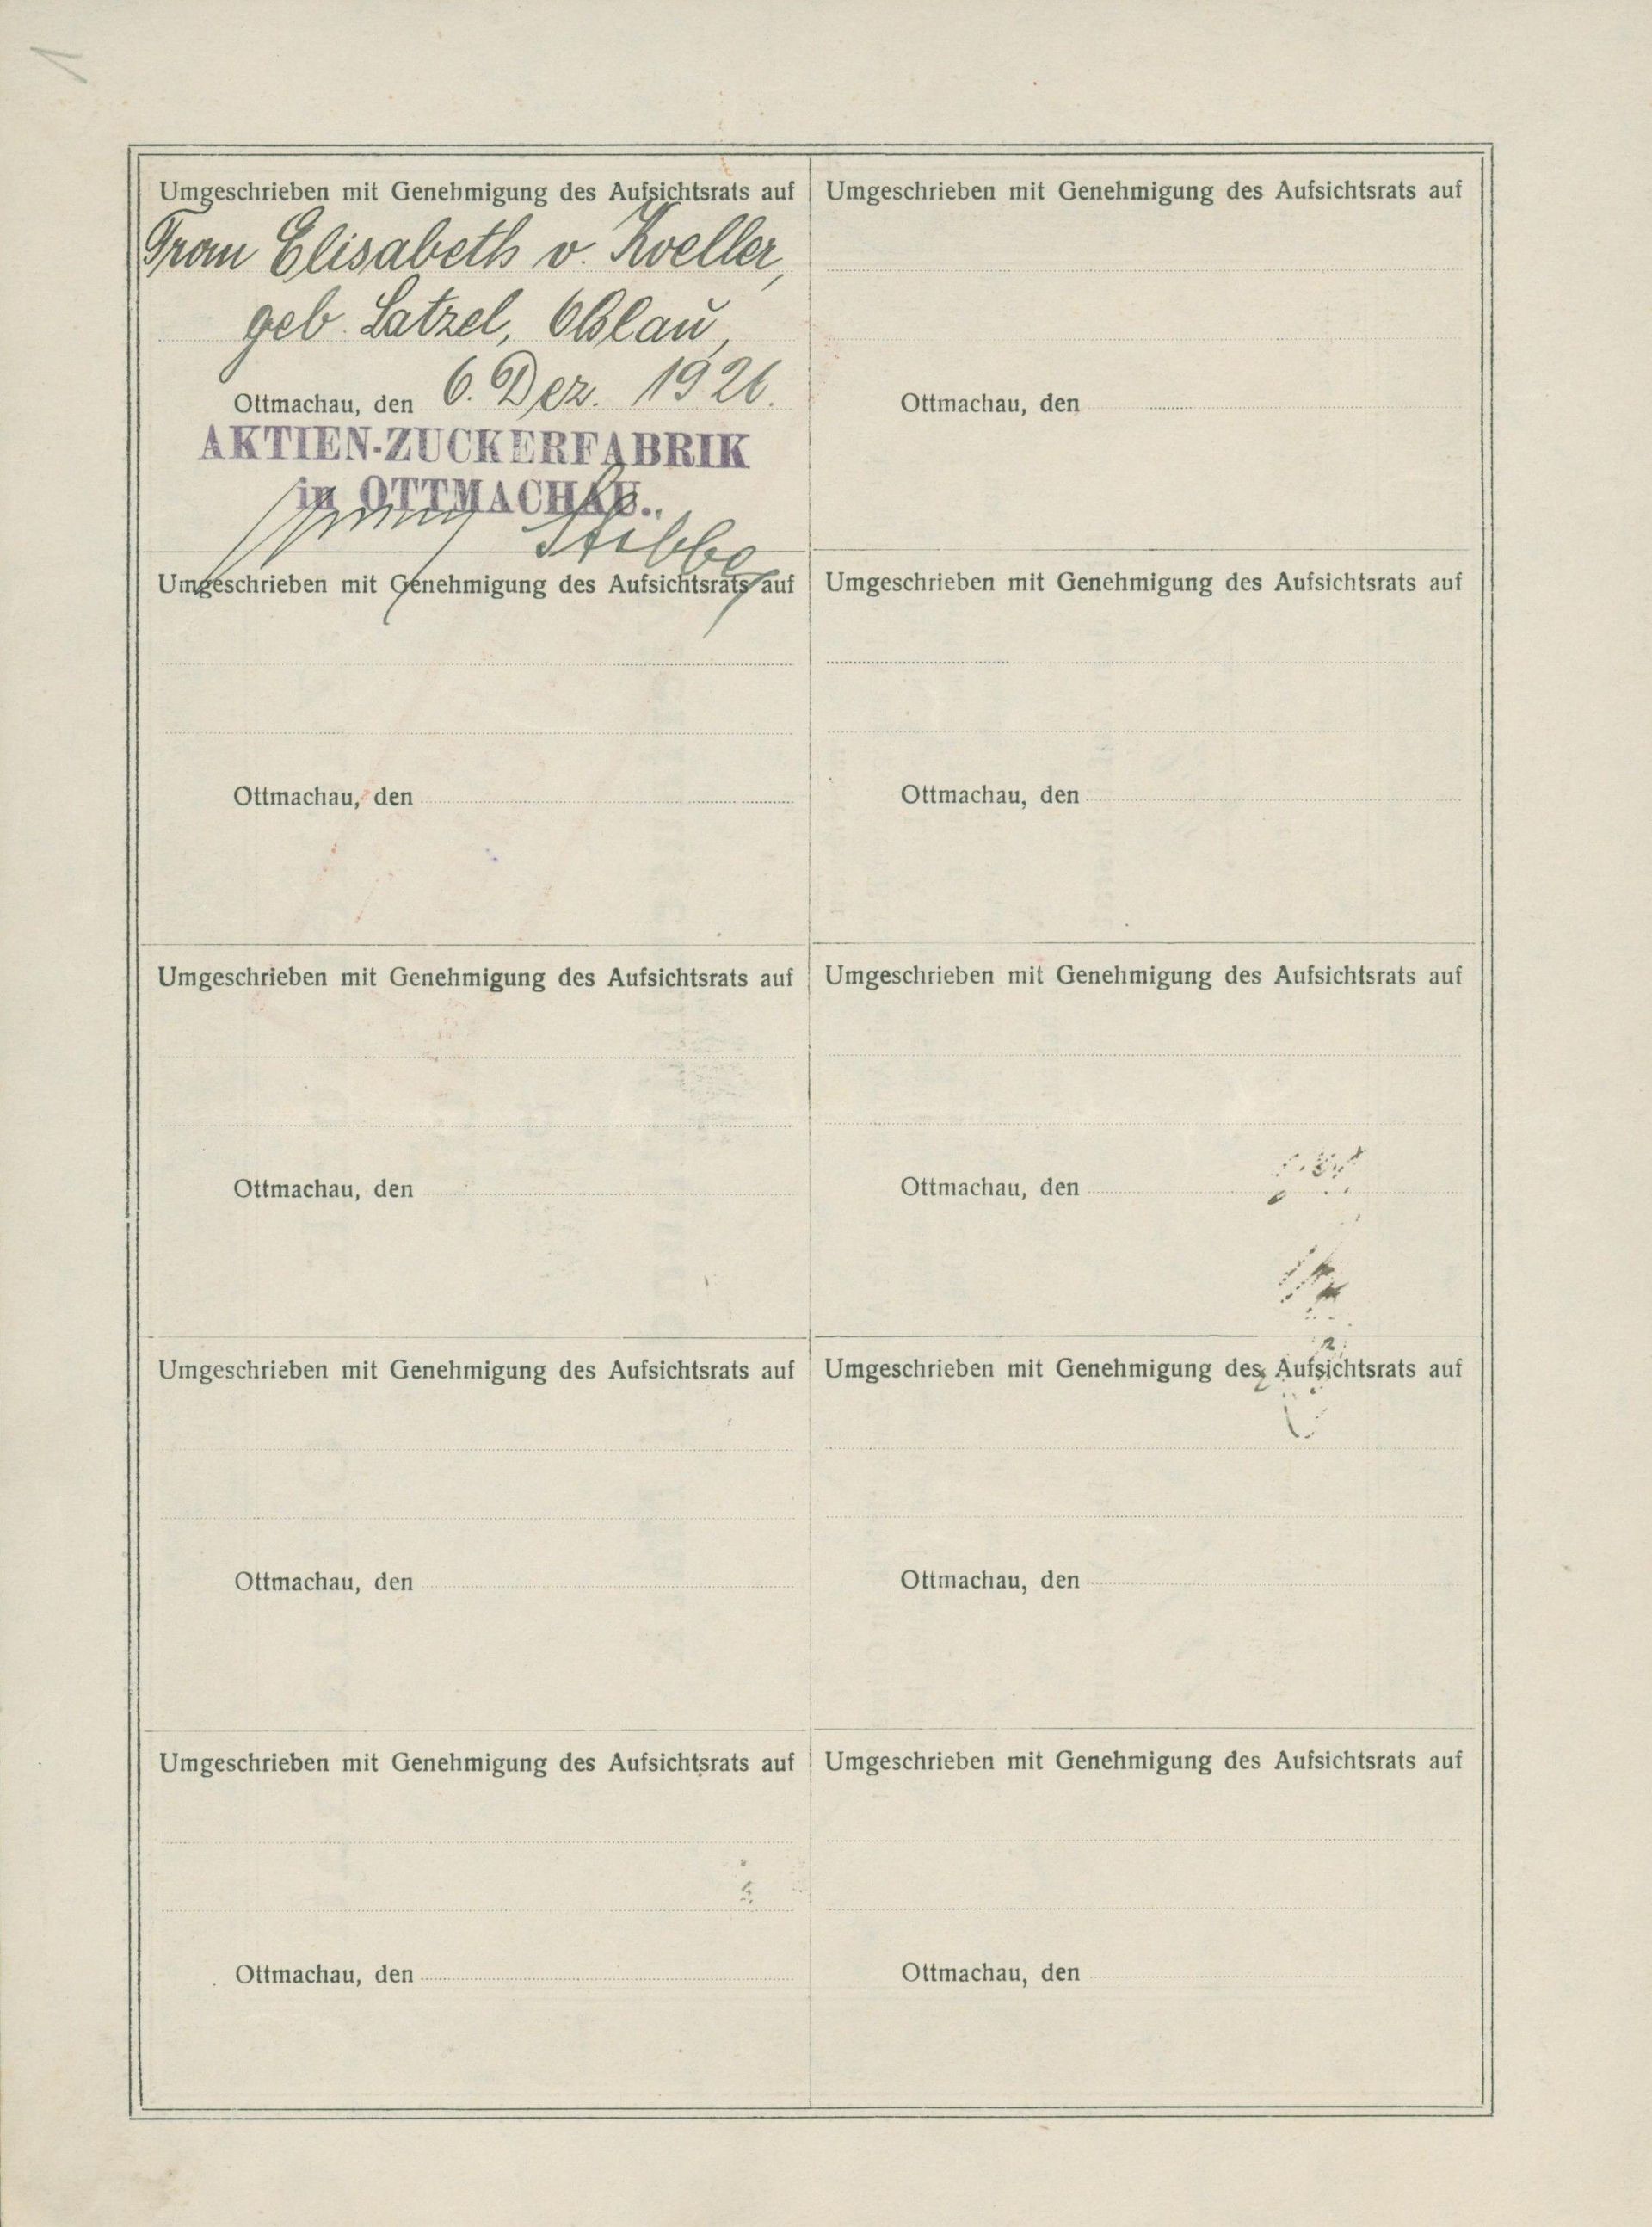 Umgeschrieben mit Genehmigung des Aufsichtsrats auf
Frau Elisabeth v. Koeller,
geb. Latzel, Ohlau,
Ottmachau, den 6. Dez. 1926.
AKTIEN-ZUCKERFABRIK
in OTTMACHAU.
Umgeschrieben mit Genehmigung des Aufsichtsrats auf
Ottmachau, den
Umgeschrieben mit Genehmigung des Aufsichtsrats auf
Ottmachau, den
Umgeschrieben mit Genehmigung des Aufsichtsrats auf
Ottmachau, den
Umgeschrieben mit Genehmigung des Aufsichtsrats auf
Ottmachau, den
Umgeschrieben mit Genehmigung des Aufsichtsrats auf
Ottmachau, den
Umgeschrieben mit Genehmigung des Aufsichtsrats auf
Ottmachau, den
Umgeschrieben mit Genehmigung des Aufsichtsrats auf
Ottmachau, den
Umgeschrieben mit Genehmigung des Aufsichtsrats auf
Ottmachau, den
Umgeschrieben mit Genehmigung des Aufsichtsrats auf
Ottmachau, den